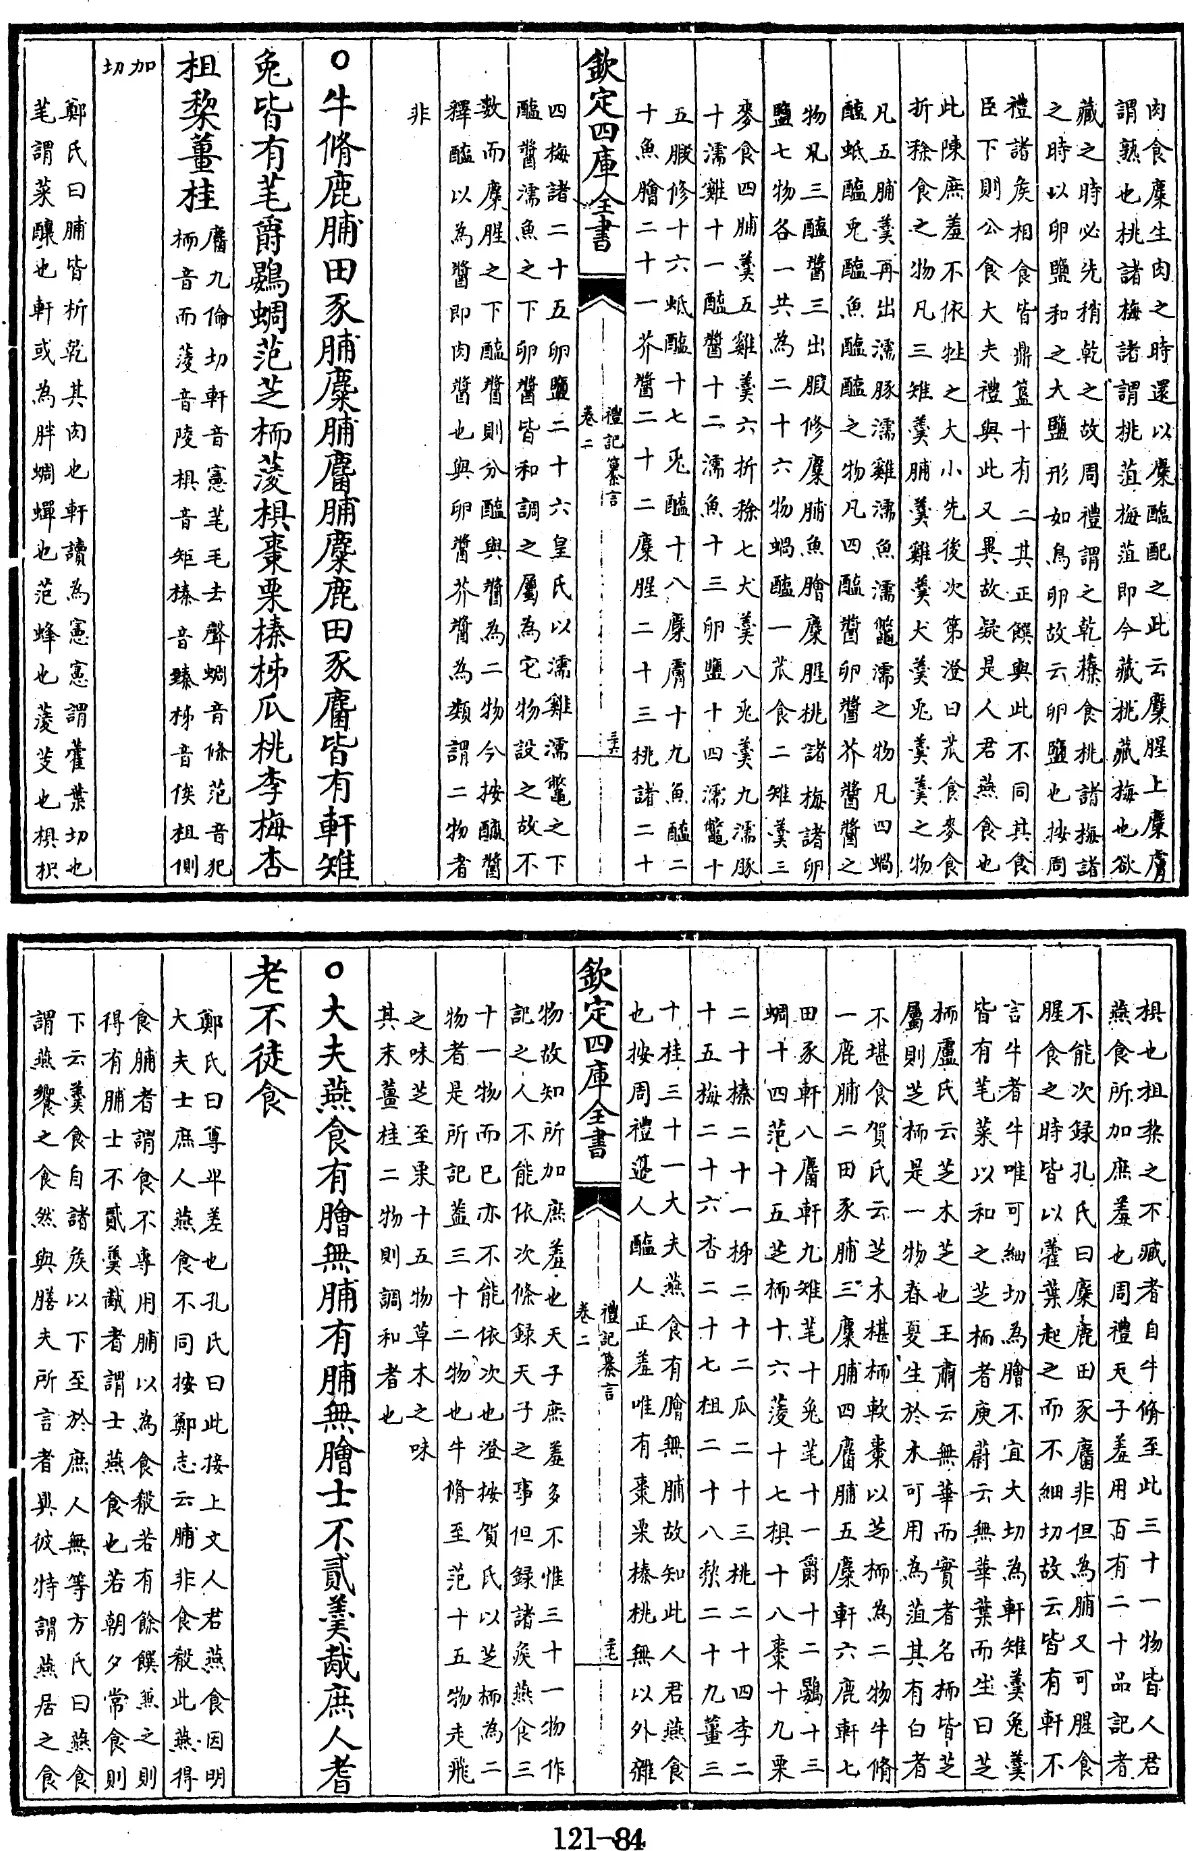 肉食麋生肉之時還以麋醢配之此云麋腥上麋膚
謂熟也桃諸梅諸謂桃菹梅菹即今藏桃藏梅也欲
藏之時必先稍乾之故周禮謂之乾䕩食桃諸梅諸
之時以卵鹽和之大鹽形如鳥卵故云卵鹽也按周
禮諸侯相食皆鼎簋十有二其正饌與此不同其食
臣下則公食大夫禮與此又異故疑是人君燕食也
此陳庶羞不依牲之大小先後次第澄曰苽食麥食
折稌食之物凡三雉羹脯羹雞羹犬羹兎羹羹之物
凡五脯羹再出濡豚濡雞濡魚濡鼈濡之物凡四蝸
醢蚳醢兎醢魚醢醢之物凡四醢醬卵醬芥醬醬之
物凡三醢醬三出腶修麋脯魚膾麋腥桃諸梅諸卵
鹽七物各一共為二十六物蝸醢一苽食二雉羹三
麥食四脯羹五雞羹六折稌七犬羹八兎羹九濡豚
十濡雞十一醢醬十二濡魚十三卵鹽十四濡鼈十
五腶修十六蚳醢十七兎醢十八麋膚十九魚醢二
十魚膾二十一芥醬二十二麋腥二十三桃諸二十
欽定四庫全書
禮記纂言
卷二
三六
四梅諸二十五卵鹽二十六皇氏以濡雞濡鼈之下
醢醬濡魚之下卵醬皆和調之屬為它物設之故不
數而麋腥之下醢醬則分醢與醬為二物今按醢醬
釋醢以為醬即肉醬也與卵醬芥醬為類謂二物者
非
○牛脩鹿脯田豕脯麋脯麕脯麋鹿田豕麕皆有軒雉
兔皆有芼爵鷃蜩范芝栭蔆椇棗栗榛柹瓜桃李梅杏
柤棃薑桂
麕九倫切軒音憲芼毛去聲蜩音條范音犯
栭音而蔆音陵椇音矩榛音臻柹音俟柤側
加
切
鄭氏曰脯皆析乾其肉也軒讀為憲憲謂藿葉切也
芼謂菜釀也軒或為胖蜩蟬也范蜂也蔆芰也椇枳
椇也柤棃之不臧者自牛脩至此三十一物皆人君
燕食所加庶羞也周禮天子羞用百有二十品記者
不能次録孔氏曰麋鹿田豕麕非但為脯又可腥食
腥食之時皆以藿葉起之而不細切故云皆有軒不
言牛者牛唯可細切為膾不宜大切為軒雉羹兔羹
皆有芼菜以和之芝栭者庾蔚云無華葉而生曰芝
栭盧氏云芝木芝也王肅云無華而實者名栭皆芝
屬則芝栭是一物春夏生於木可用為菹其有白者
不堪食賀氏云芝木椹栭軟棗以芝栭為二物牛脩
一鹿脯二田豕脯三麋脯四麕脯五麋軒六鹿軒七
田豕軒八麕軒九雉芼十兔芼十一爵十二鷃十三
蜩十四范十五芝栭十六蔆十七椇十八棗十九栗
二十榛二十一柹二十二瓜二十三桃二十四李二
十五梅二十六杏二十七柤二十八棃二十九薑三
十桂三十一大夫燕食有膾無脯故知此人君燕食
也按周禮籩人醢人正羞唯有棗栗榛桃無以外雜
欽定四庫全書
禮記纂言
卷二
三七
物故知所加庶羞也天子庶羞多不惟三十一物作
記之人不能依次條録天子之事但録諸侯燕食三
十一物而已亦不能依次也澄按賀氏以芝栭為二
物者是所記蓋三十二物也牛脩至范十五物走飛
之味芝至栗十五物草木之味
其末薑桂二物則調和者也
○大夫燕食有膾無脯有脯無膾士不貳羹胾庶人耆
老不徒食
鄭氏曰尊卑差也孔氏曰此接上文人君燕食因明
大夫士庶人燕食不同按鄭志云脯非食殽此燕得
食脯者謂食不專用脯以為食殽若有餘饌兼之則
得有脯士不貳羹胾者謂士燕食也若朝夕常食則
下云羹食自諸侯以下至於庶人無等方氏曰燕食
謂燕饗之食然與膳夫所言者異彼特謂燕居之食
121-84